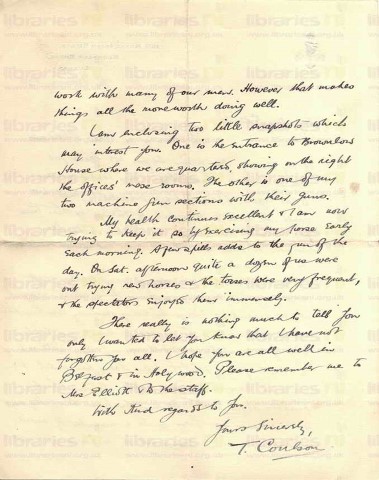 work with many of our men. However that makes
things all the more worth doing well.
I am enclosing two little snapshots which
may interest you. One is the entrance to Brownlow
House where we are quarters, showing on the right
the officers' mess rooms. The other is one of my
two machine gun sections with their guns.
My health continues excellent & I am now
trying to keep it so by exercising my horse early
each morning. A few spells adds to the fun of the
day. On Sat. afternoon quite a dozen of us were
out trying new horses & the tosses were very frequent,
& the spectators enjoyed them immensely.
There really is nothing much to tell you
only I wanted to let you know that I have not
forgotten you all. I hope you are all well in
Belfast & in Holywood. Please remember me to
Mrs Elliott & to the staff.
With kind regards to you.
Yours Sincerely,
T. Coulson
libraries